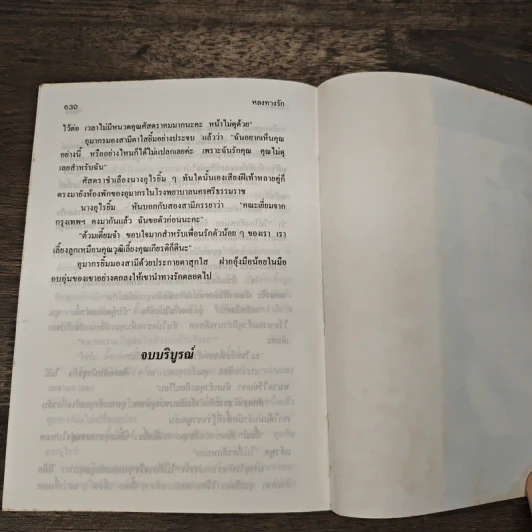 630
หลงทางรัก
ไว้ต่อ เวลาไม่มีหนวดคุณศัสตราคมมากนะคะ หน้าไม่ดุด้วย"
อุมากรมองสามีตาใสยิ้มอย่างประจบ แล้วว่า "ฉันอยากเห็นคุณ
อย่างนี้ หรืออย่างไหนก็ได้ไม่แปลกเลยค่ะ เพราะฉันรักคุณ คุณไม่ดุ
เลยสำหรับฉัน"
ศัสตราชำเลืองนางอุไรยิ้ม ๆ ทันใดนั้นเองเสียงฝีเท้าหลายคู่ก็
ตรงมายังห้องพักของอุมากรในโรงพยาบาลนครศรีธรรมราช
นางอุไรยิ้ม หันบอกกับสองสามีภรรยาว่า "คณะเยี่ยมจาก
กรุงเทพฯ คงมากันแล้ว ฉันขอตัวก่อนนะคะ"
"ด้วมเตี้ยมจ๋า ขอบใจมากสำหรับเพื่อนรักตัวน้อย ๆ ของเรา เรา
เลี้ยงลูกเหมือนคุณวุฒิเลี้ยงคุณเกียรติก็ดีนะ"
อุมากรยิ้มมองสามีด้วยประกายตาสุกใส ฝากอุ้งมือน้อยในมือ
อบอุ่นของเขาอย่างตกลงให้เขานำทางรักตลอดไป
จบบริบูรณ์